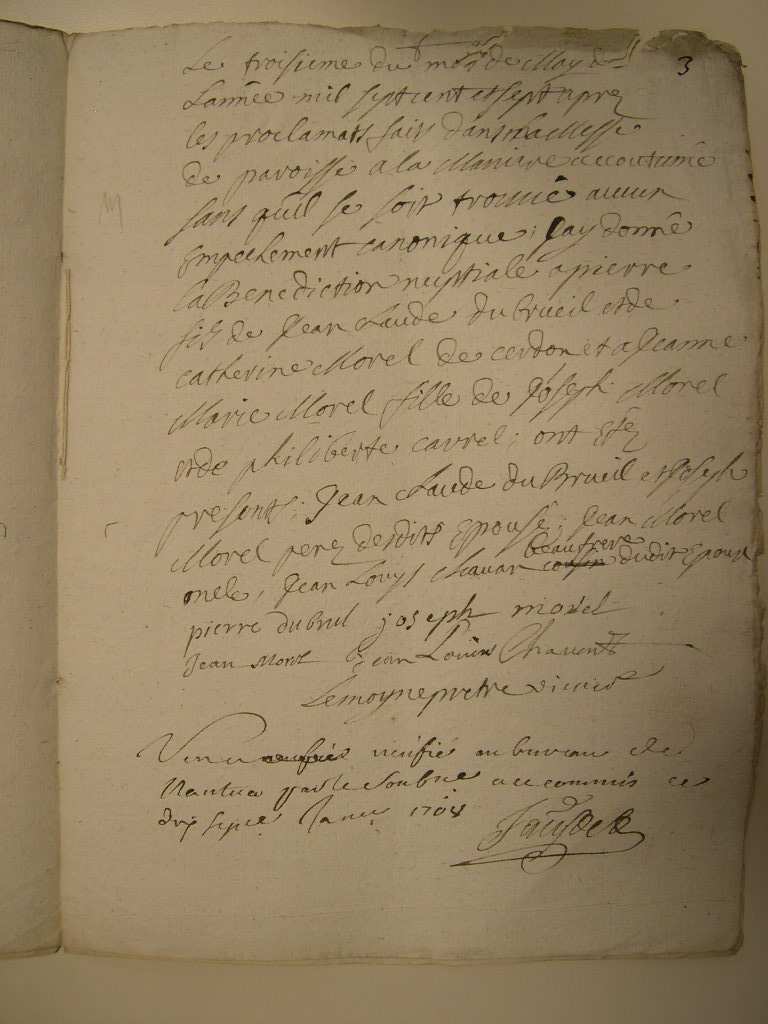 3
Le troisieme du mois de May de
Lannée mil sept cent et sept aprez
les proclamats fais dans la Messe
de paroisse a la Maniere accoutumée
sans qu'il se soit trouué aucun
Empechement canonique; Jay donné
la Benediction nuptiale a pierre
fils de Jean Laude du brueil et de
catherine Morel de cerdon et a Jeanne
Marie Morel fille de Joseph Morel
et de philiberte carrel; ont étéz
presents; Jean Claude du Brueil et Joseph
Morel perez desdits Epousé; Jean Morel
beaufrere
oncle, Jean Louys chauan cousin dudit Epoux
pierre dubrul joseph morel
Jean Morel Jean Louis Chauent
Lemoyne pretre vicaire
Veu verifié au bureau de
Nantua par le Soubne commis ce
dix sept Janu 1708